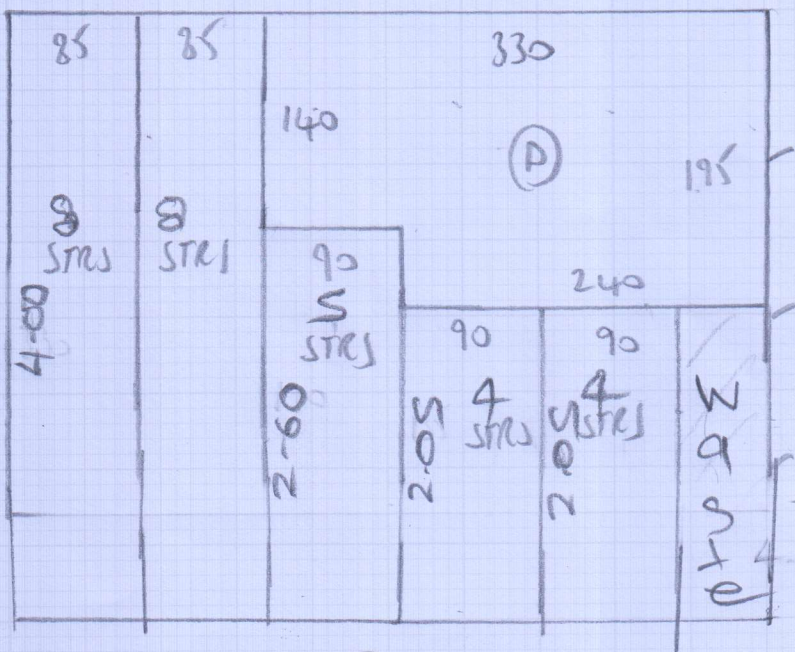 85 85 330
140
D
195
8
STRS
8
STRS
4-00
90
5
STRS
2-60
240
90
4
STRS
2-05
90
4
STRS
2-05
Waste